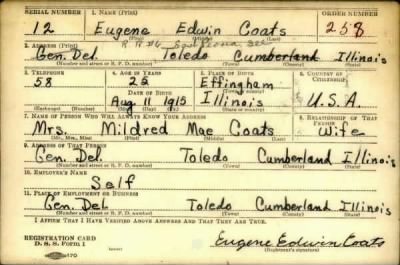 SERIAL NUMBER 1. NAME (Print) ORDER NUMBER
12 Eugene Edwin Coats 258
(First) (Middle) (Last)
2. ADDRESS (Print)
Gen. Del. Toledo Cumberland Illinois
(Number and street or R. F. D. number) (Town) (County) (State)
3. TELEPHONE 4. AGE IN YEARS 5. PLACE OF BIRTH 6. COUNTRY OF CITIZENSHIP
58 Effingham
DATE OF BIRTH
Aug 11 1915 Illinois U.S.A.
(Exchange) (Number) (Mo.) (Day) (Yr.) (State or country)
7. NAME OF PERSON WHO WILL ALWAYS KNOW YOUR ADDRESS 8. RELATIONSHIP OF THAT PERSON
Mrs. Mildred Mae Coats Wife
(Mr., Mrs., Miss) (First) (Middle) (Last)
9. ADDRESS OF THAT PERSON
Gen. Del. Toledo Cumberland Illinois
(Number and street or R. F. D. number) (Town) (County) (State)
10. EMPLOYER'S NAME
Self
11. PLACE OF EMPLOYMENT OR BUSINESS
Gen. Del. Toledo Cumberland Illinois
(Number and street or R. F. D. number) (Town) (County) (State)
I AFFIRM THAT I HAVE VERIFIED ABOVE ANSWERS AND THAT THEY ARE TRUE.
REGISTRATION CARD
D. S. S. Form 1 Eugene Edwin Coats
(Registrant's signature)